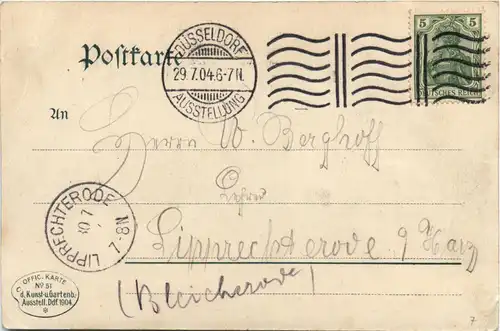 Postkarte
DÜSSELDORF
29.7.04.6-7N.
AUSSTELLUNG
5 5
DEUTSCHES REICH
An
Herrn W. Berghoff
Lehrer
Lipprechterode a/Harz
(Bleicherode)
LIPPRECHTERODE
30.7
7-8N
OFFIC. KARTE
No 51
d. Kunst-u. Gartenb.
Ausstell. Ddf 1904.
7